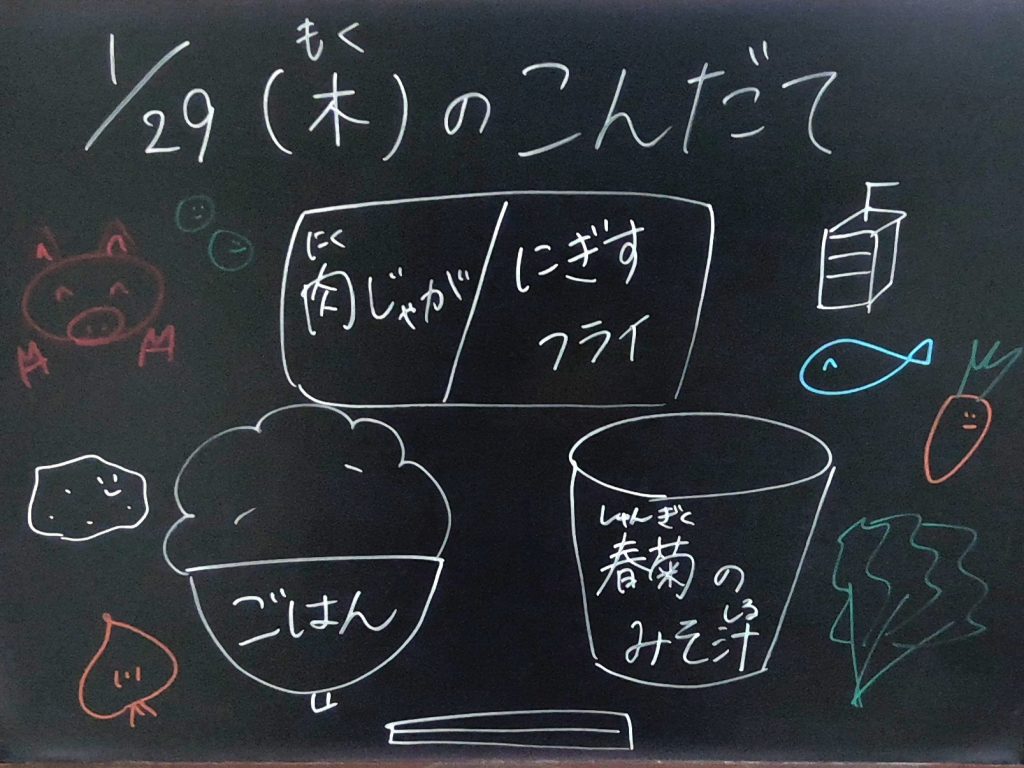 もく
1/29(木)のこんだて
にく
肉じゃが
にぎす
フライ
ごはん
しゅんぎく
春菊の
しる
みそ汁